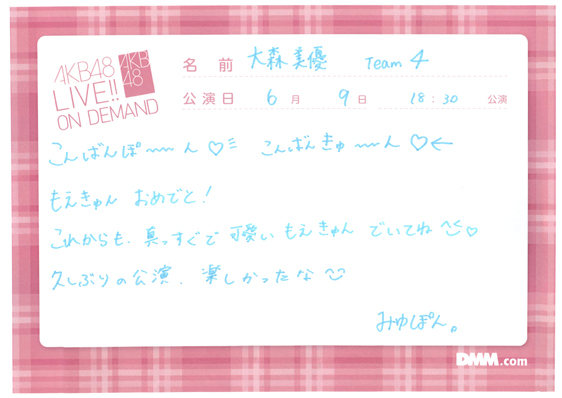 AKB48
LIVE!!
ON DEMAND
AKB
48
名 前 大森美優 Team 4
公演日 6月 9日 18:30 公演
こんばんぽ〜〜ん♡ こんばんきゅ〜〜ん♡←
もえきゅん おめでと!
これからも、真っすぐで可愛いもえきゅんでいてね♡
久しぶりの公演、楽しかったな
みゆぽん。
DMM.com